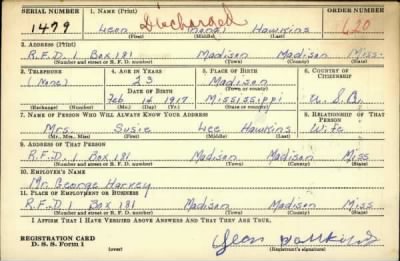 SERIAL NUMBER 1. NAME (Print) ORDER NUMBER
Discharged
1479 Leon (none) Hawkins 620
(First) (Middle) (Last)
2. ADDRESS (Print)
R.F.D. 1 Box 181 Madison Madison Miss.
(Number and street or R. F. D. number) (Town) (County) (State)
3. TELEPHONE 4. AGE IN YEARS 5. PLACE OF BIRTH 6. COUNTRY OF CITIZENSHIP
(None) 23 Madison
(Town or county)
DATE OF BIRTH
Feb 14 1917 Mississippi U.S.A.
(Exchange) (Number) (Mo.) (Day) (Yr.) (State or country)
7. NAME OF PERSON WHO WILL ALWAYS KNOW YOUR ADDRESS 8. RELATIONSHIP OF THAT PERSON
Mrs. Susie Lee Hawkins Wife
(Mr., Mrs., Miss) (First) (Middle) (Last)
9. ADDRESS OF THAT PERSON
R.F.D. 1 Box 181 Madison Madison Miss
(Number and street or R. F. D. number) (Town) (County) (State)
10. EMPLOYER'S NAME
Mr. George Harvey
11. PLACE OF EMPLOYMENT OR BUSINESS
R.F.D. 1 Box 181 Madison Madison Miss
(Number and street or R. F. D. number) (Town) (County) (State)
I AFFIRM THAT I HAVE VERIFIED ABOVE ANSWERS AND THAT THEY ARE TRUE.
REGISTRATION CARD
D. S. S. Form 1 (over) (Registrant's signature)